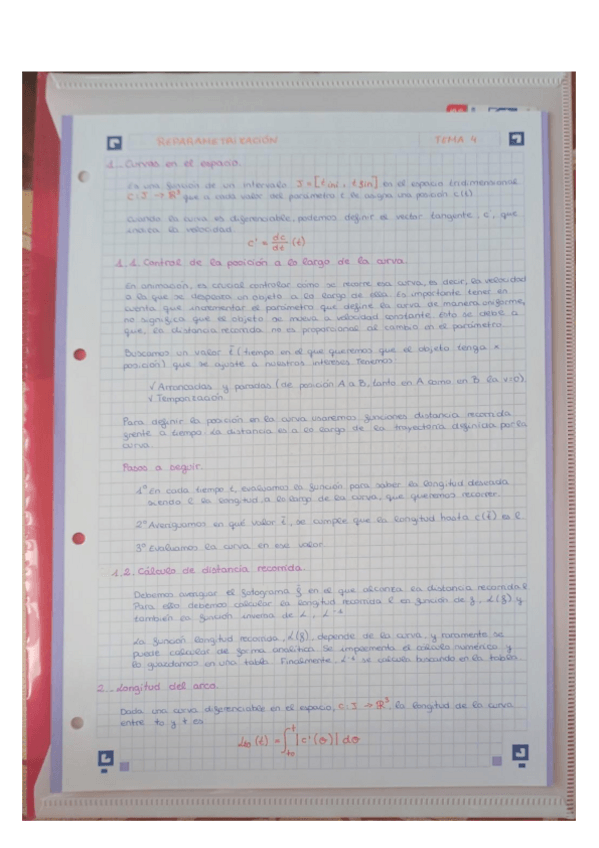 REPARAMETRIZACIÓN TEMA 4
1. Curvas en el espacio.
Es una función de un intervalo I = [t ini, t fin] en el espacio tridimensional
C: I → R³ que a cada valor del parámetro t le asigna una posición c(t)
Cuando la curva es diferenciable, podemos definir el vector tangente, c', que
indica la velocidad.
c' = dc/dt (t)
1.1. Control de la posición a lo largo de la curva.
En animación, es crucial controlar como se recorre esa curva, es decir, la velocidad
a la que se desplaza un objeto a lo largo de ella. Es importante tener en
cuenta que incrementar el parámetro que define la curva de manera uniforme,
no significa que el objeto se mueva a velocidad constante. Esto se debe a
que, la distancia recorrida no es proporcional al cambio en el parámetro.
Buscamos un valor t̃ (tiempo en el que queremos que el objeto tenga x
posición) que se ajuste a nuestros intereses. Tenemos:
√ Arrancadas y paradas (de posición A a B, tanto en A como en B, la v=0).
√ Temporización.
Para definir la posición en la curva usaremos funciones distancia recorrida
frente a tiempo. La distancia es a lo largo de la trayectoria definida por la
curva.
Pasos a seguir.
1º En cada tiempo t, evaluamos la función para saber la longitud deseada
siendo l la longitud, a lo largo de la curva, que queremos recorrer.
2º Averiguamos en qué valor t̃, se cumple que la longitud hasta c(t̃) es l.
3º Evaluamos la curva en ese valor.
1.2. Cálculo de distancia recorrida.
Debemos averiguar el fotograma f̃ en el que alcanza la distancia recorrida l.
Para ello debemos calcular la longitud recorrida l en función de f, L(f) y
también la función inversa de L, L⁻¹
La función longitud recorrida, L(f), depende de la curva, y raramente se
puede calcular de forma analítica. Se implementa el cálculo numérico y
lo guardamos en una tabla. Finalmente, L⁻¹ se calcula buscando en la tabla.
2. Longitud del arco.
Dada una curva diferenciable en el espacio, C: I → R³, la longitud de la curva
entre t0 y t es
Lt0 (t) = ∫t0^t |c'(θ)| dθ